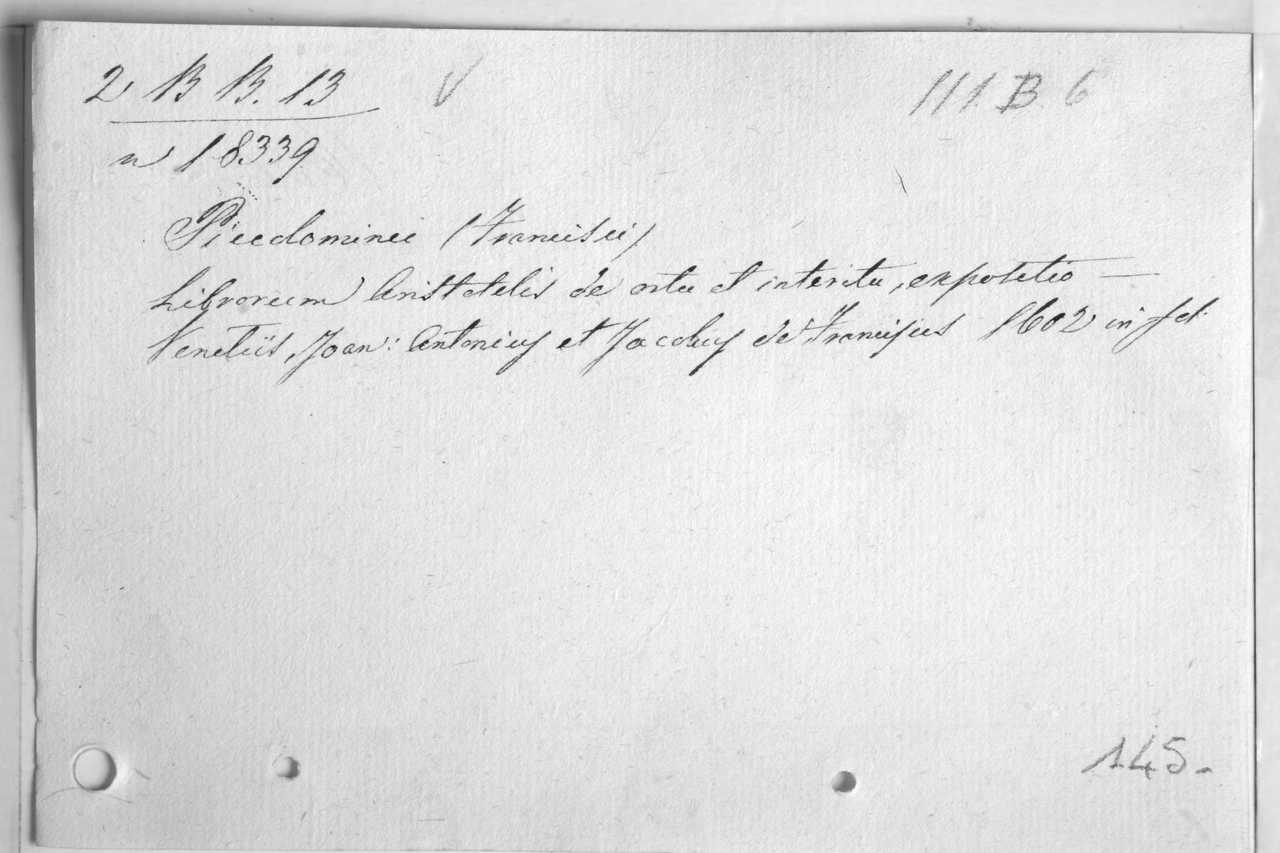 2 B B. 13 V III. B. 6
n 18339
Piccolominei (Francisci)
Librorum Aristotelis de ortu et interitu, expositio —
Venetiis, Joan: Antonius et Jacobus de Franciscus 1602 in fol:
145.